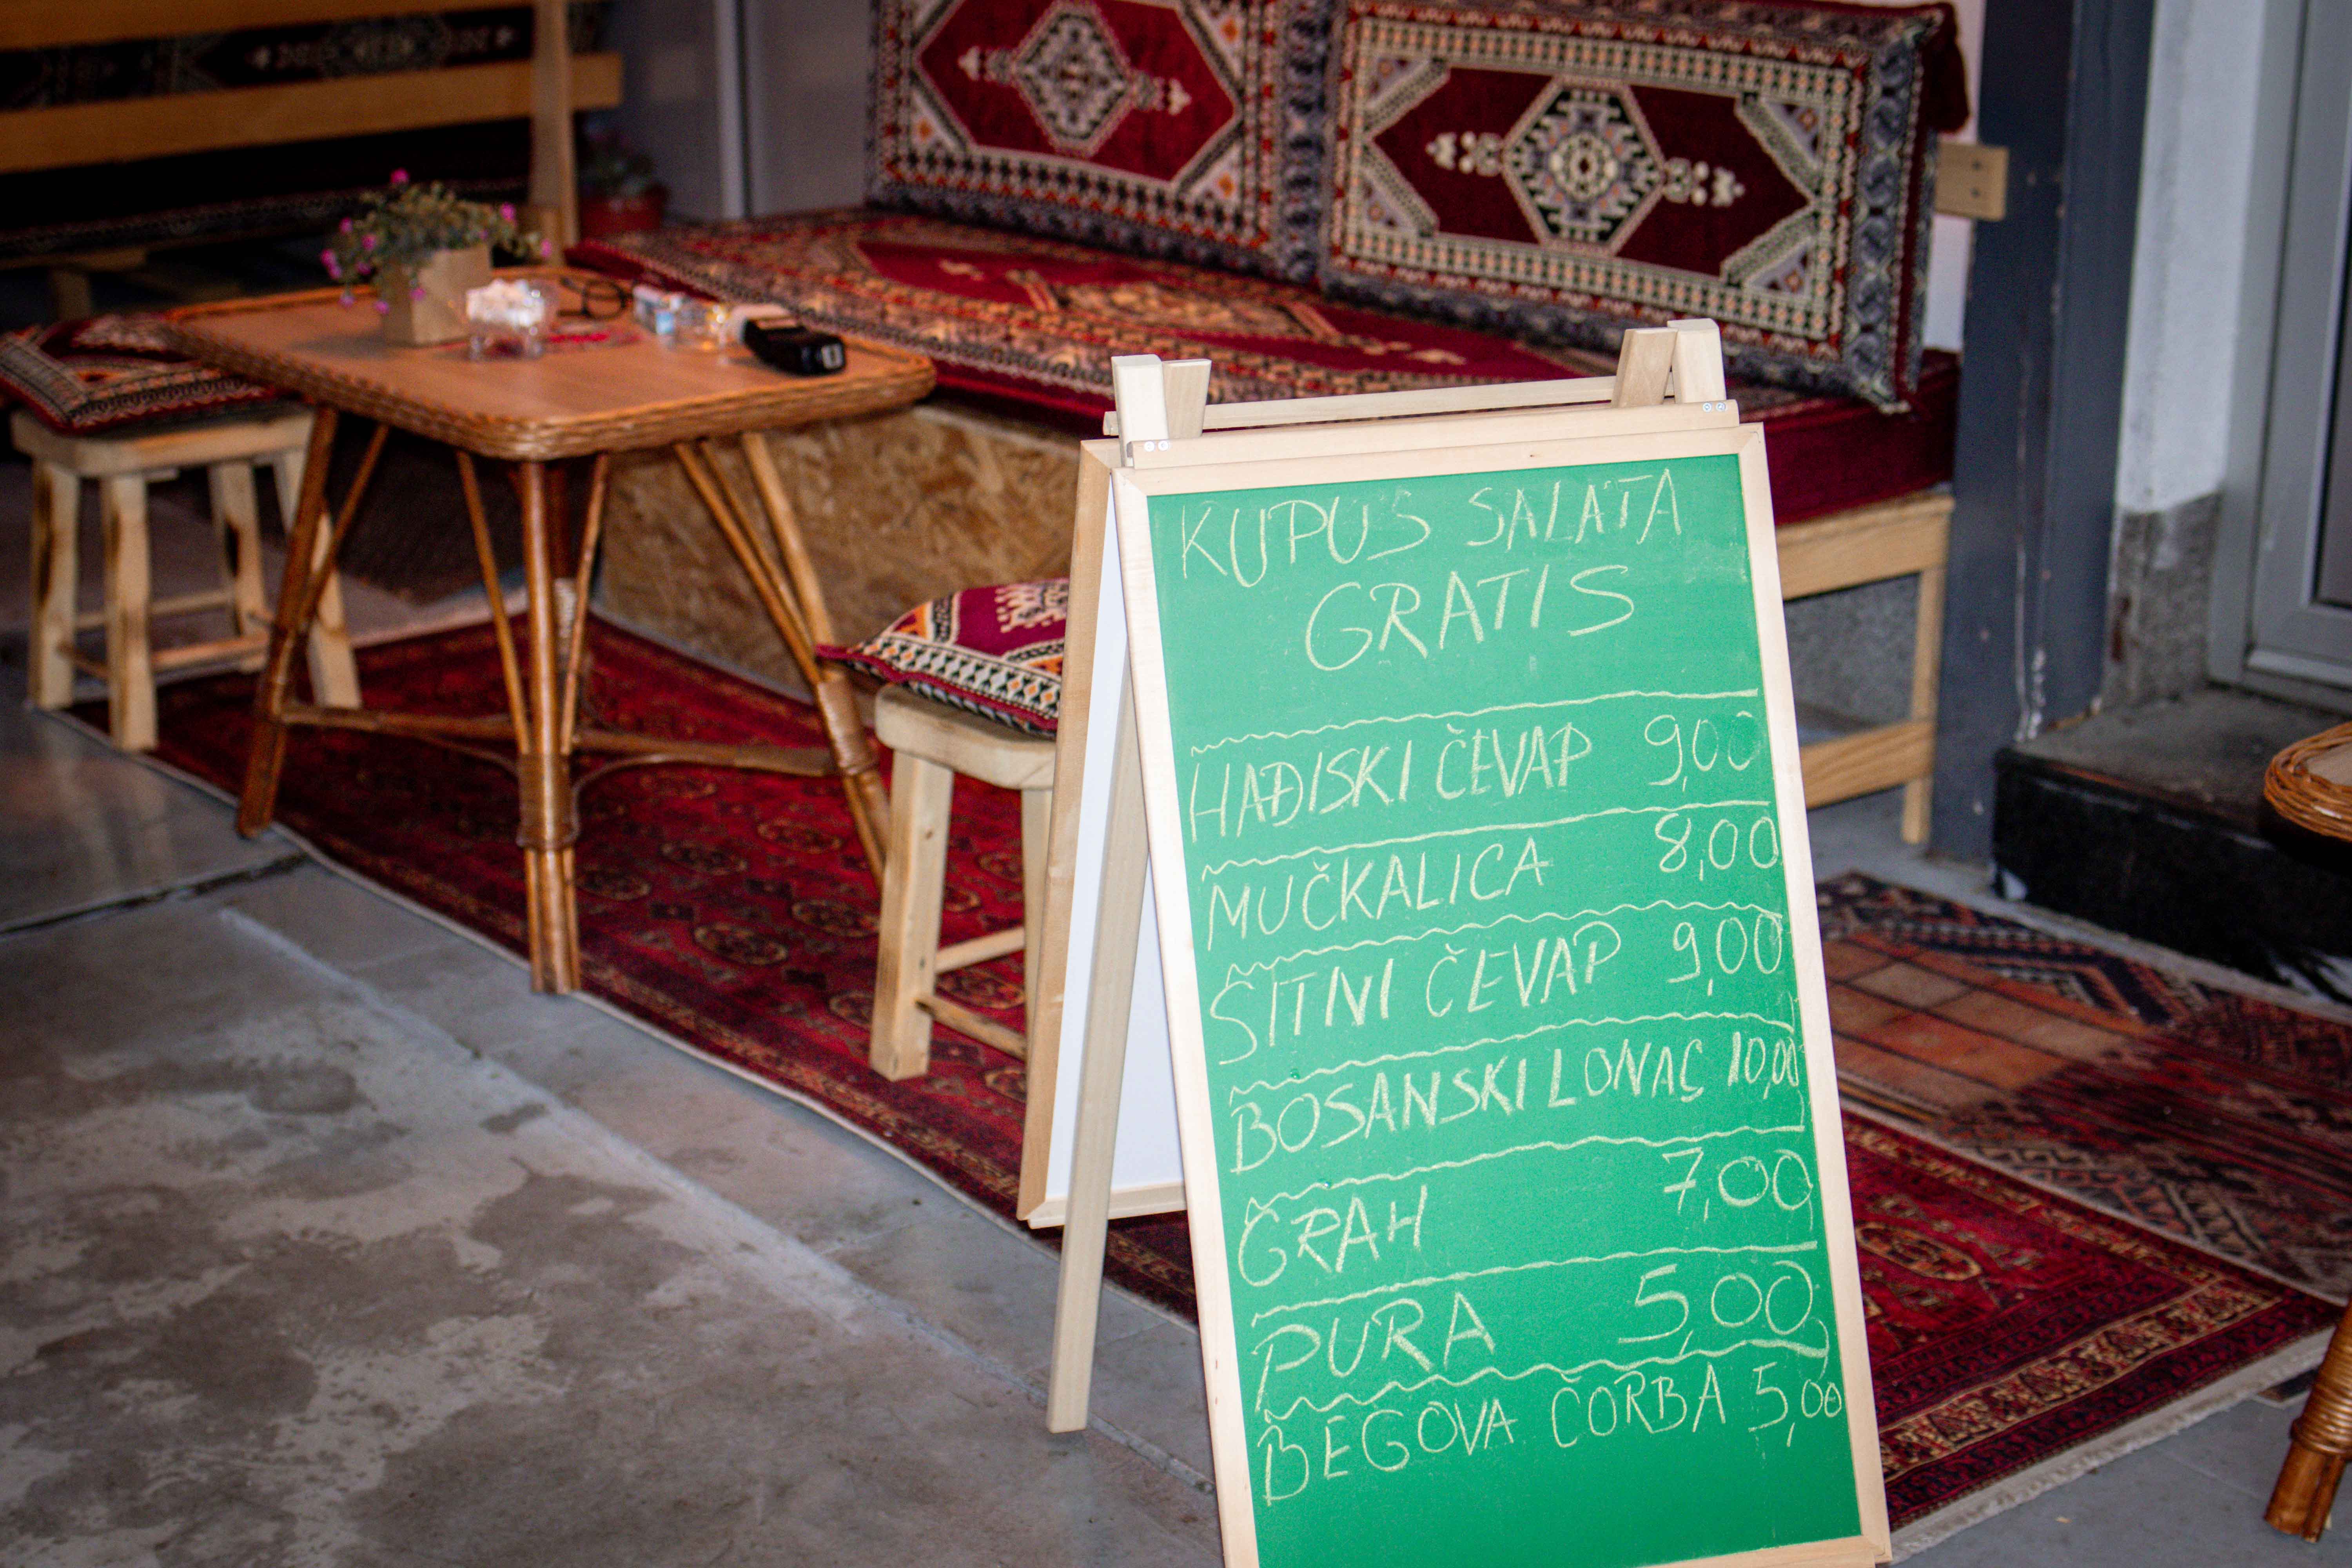 KUPUS SALATA
GRATIS
HAĐISKI ČEVAP 9,00
MUČKALICA 8,00
SITNI ČEVAP 9,00
BOSANSKI LONAC 10,00
GRAH 7,00
PURA 5,00
BEGOVA ČORBA 5,00